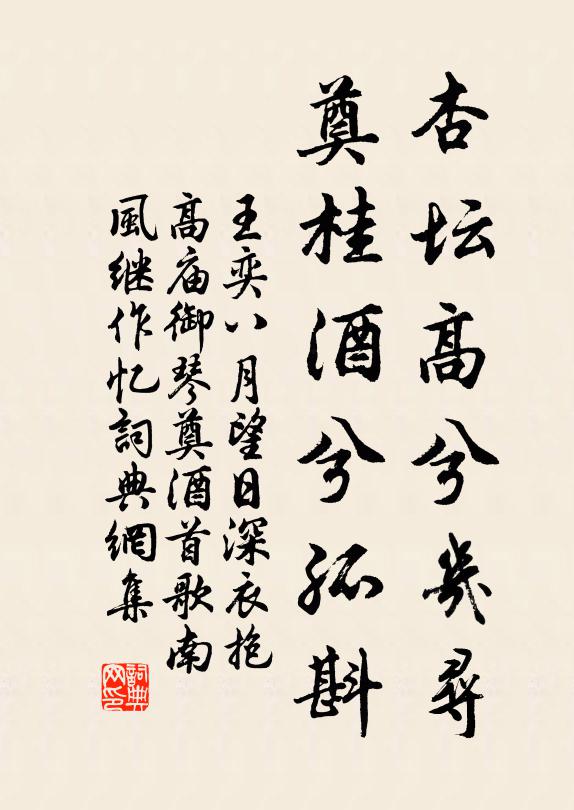 杏坛高兮几寻
奠桂酒兮孤斟
王奕八月望日深衣抱
高庙御琴奠酒首歌南
風继作忆詞典網集
詞典网印